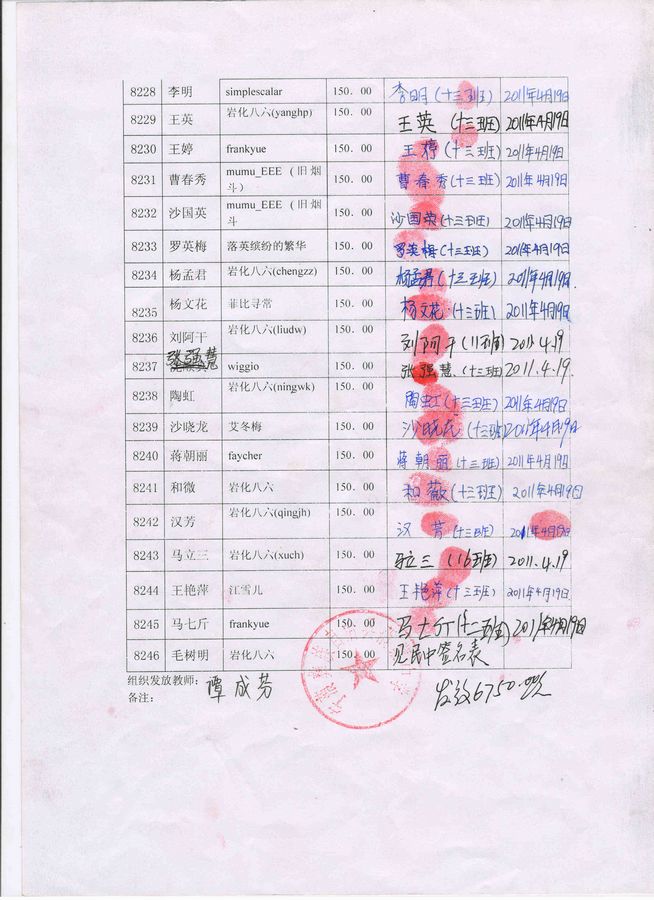 8228 李明 simplescalar 150.00 李明(十三班) 2011年4月19日
8229 王英 岩化八六(yanghp) 150.00 王英(十三班) 2011年4月19日
8230 王婷 frankyue 150.00 王婷(十三班) 2011年4月19日
8231 曹春秀 mumu_EEE(旧烟 150.00 曹春秀(十三班) 2011年4月19日
斗)
8232 沙国英 mumu_EEE(旧烟 150.00 沙国英(十三班) 2011年4月19日
斗
8233 罗英梅 落英缤纷的繁华 150.00 罗英梅(十三班) 2011年4月19日
8234 杨孟君 岩化八六(chengzz) 150.00 杨孟君(十三班) 2011年4月19日
8235 杨文花 菲比寻常 150.00 杨文花(十三班) 2011年4月19日
8236 刘阿干 岩化八六(liudw) 150.00 刘阿干(11班) 2011.4.19
8237 张强慧 wiggio 150.00 张强慧(十三班) 2011.4.19.
8238 陶虹 岩化八六(ningwk) 150.00 陶虹(十三班) 2011年4月19日
8239 沙晓龙 艾冬梅 150.00 沙晓龙(十三班) 2011年4月19日
8240 蒋朝丽 faycher 150.00 蒋朝丽(十三班) 2011年4月19日
8241 和微 岩化八六 150.00 和薇(十三班) 2011年4月19日
8242 汉芳 岩化八六(qingjh) 150.00 汉芳(十三班) 2011年4月19日
8243 马立三 岩化八六(xuch) 150.00 马立三(16班) 2011.4.19
8244 王艳萍 江雪儿 150.00 王艳萍(十三班) 2011年4月19日
8245 马七斤 frankyue 150.00 马七斤(十二班) 2011年4月19日
8246 毛树明 岩化八六 150.00 见民中签名表
组织发放教师: 谭成芬
备注: 发放6750.00元